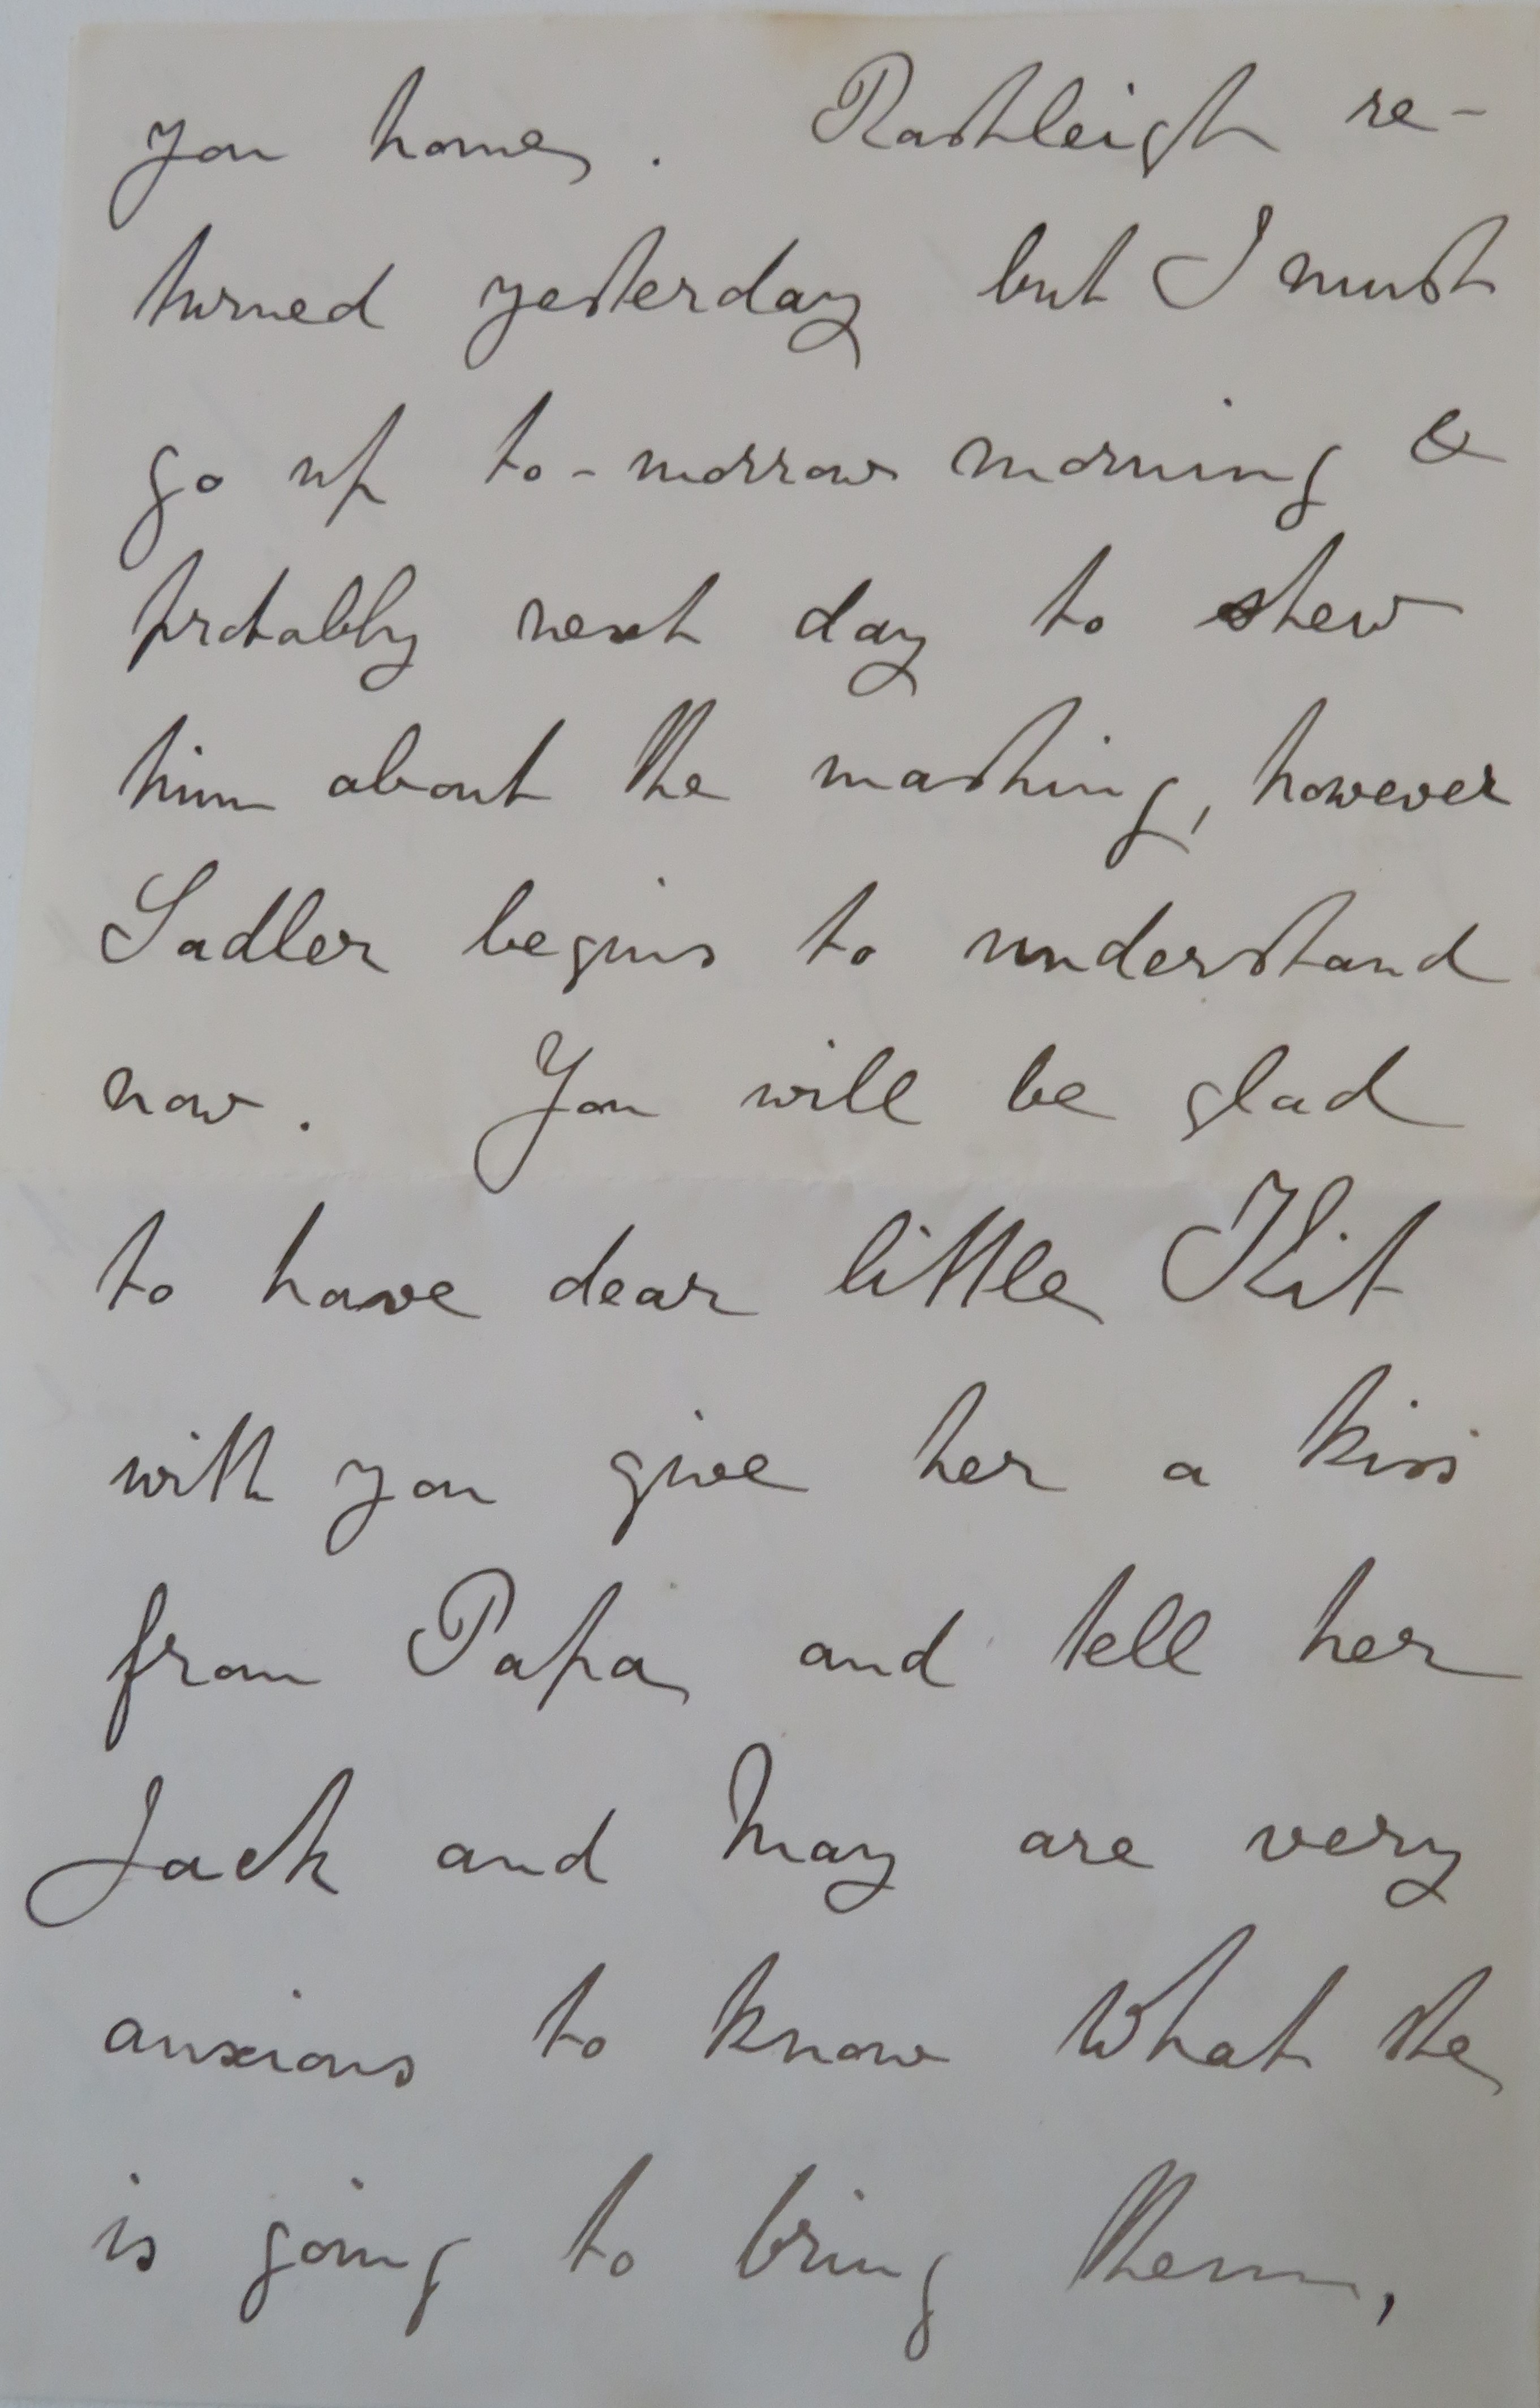 you home. Rashleigh re-
turned yesterday but I must
go up to-morrow morning &
probably next day to shew
him about the mashing, however
Sadler begins to understand
now. You will be glad
to have dear little Kit
with you give her a kiss
from Papa and tell her
Jack and May are very
anxious to know what she
is going to bring them,